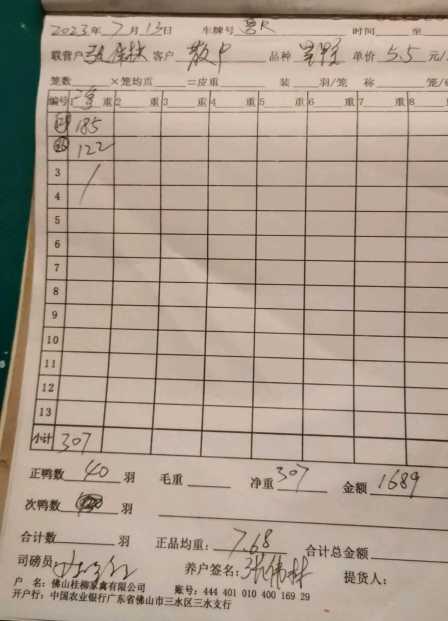 2023年 7月 13日 车牌号 时间 至
联营户 客户 散户 品种 单价 5.5 元/
笼数 ×笼均页 =皮重 装 羽/笼 称 笼/
编号 1净重 2 重 3 重 4 重 5 重 6 重 7 重 8
185
122
3
4
5
6
7
8
9
10
11
12
13
小计 307
正鸭数 40 羽 毛重 净重 307 金额 1689
次鸭数 羽
合计数 羽 正品均重: 7.68 合计总金额
司磅员 养户签名: 张伟林 提货人:
户 名: 佛山桂柳家禽有限公司 账号: 444 401 010 400 169 29
开户行: 中国农业银行广东省佛山市三水区三水支行